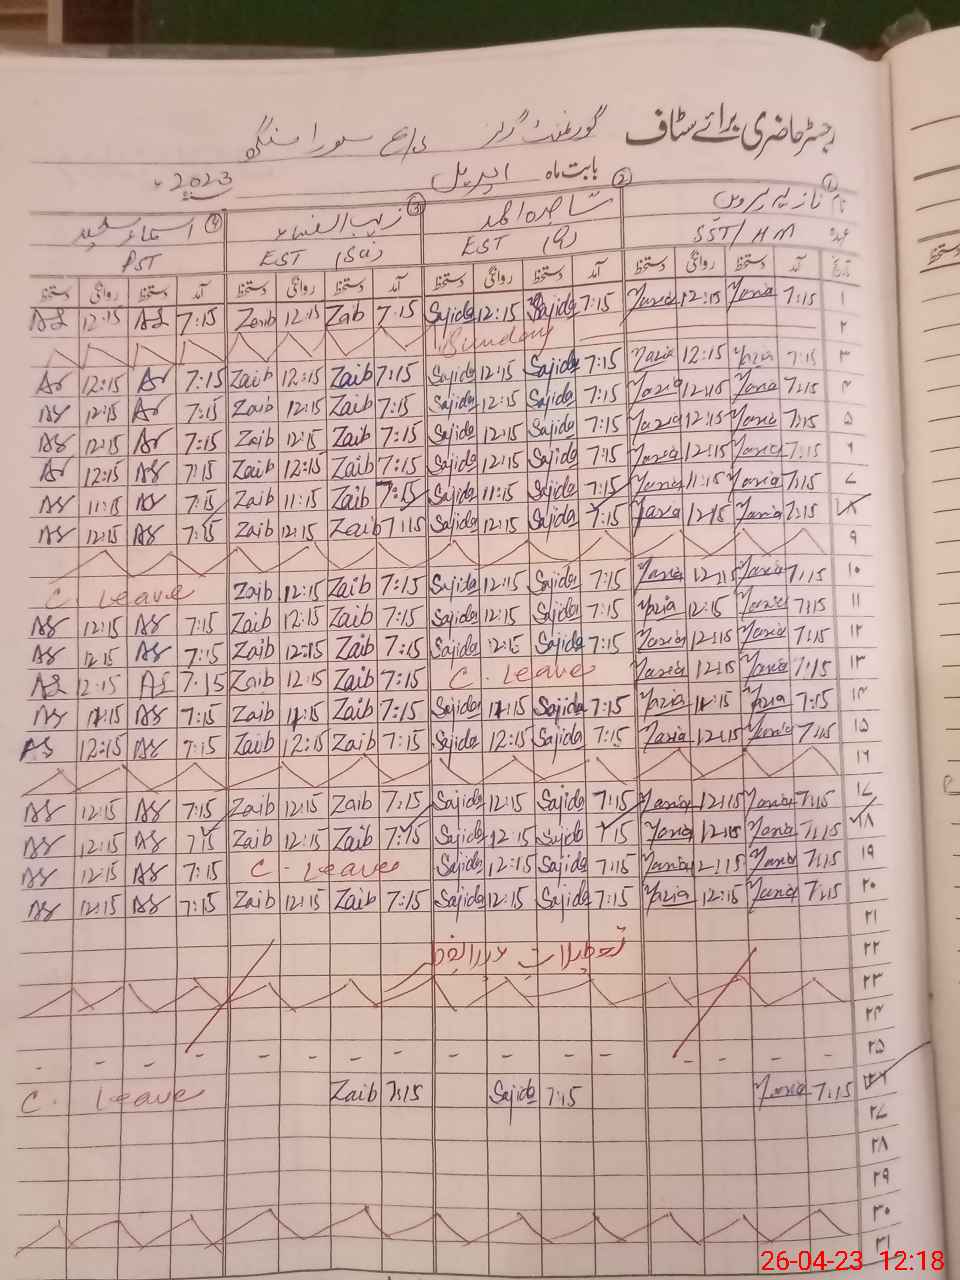 رجسٹر حاضری برائے سٹاف گورنمنٹ گرلز
بابت ماہ اپریل 2023ء
① نام نازیہ پروین ② ساجدہ احمد ③ زیب النساء ④
عہدہ SST/HM EST EST PST
تاریخ آمد دستخط روانگی دستخط آمد دستخط روانگی دستخط آمد دستخط روانگی دستخط آمد دستخط روانگی دستخط
۱ 7:15 Nazia 12:15 Nazia 7:15 Sajida 12:15 Sajida 7:15 Zaib 12:15 Zaib 7:15 AS 12:15 AS
۲ Sunday
۳ 7:15 Nazia 12:15 Nazia 7:15 Sajida 12:15 Sajida 7:15 Zaib 12:15 Zaib 7:15 AS 12:15 AS
۴ 7:15 Nazia 12:15 Nazia 7:15 Sajida 12:15 Sajida 7:15 Zaib 12:15 Zaib 7:15 AS 12:15 AS
۵ 7:15 Nazia 12:15 Nazia 7:15 Sajida 12:15 Sajida 7:15 Zaib 12:15 Zaib 7:15 AS 12:15 AS
۶ 7:15 Nazia 12:15 Nazia 7:15 Sajida 12:15 Sajida 7:15 Zaib 12:15 Zaib 7:15 AS 12:15 AS
۷ 7:15 Nazia 11:15 Nazia 7:15 Sajida 11:15 Sajida 7:15 Zaib 11:15 Zaib 7:15 AS 11:15 AS
۸ 7:15 Nazia 12:15 Nazia 7:15 Sajida 12:15 Sajida 7:15 Zaib 12:15 Zaib 7:15 AS 12:15 AS
۹
۱۰ 7:15 Nazia 12:15 Nazia 7:15 Sajida 12:15 Sajida 7:15 Zaib 12:15 Zaib C. Leave
۱۱ 7:15 Nazia 12:15 Nazia 7:15 Sajida 12:15 Sajida 7:15 Zaib 12:15 Zaib 7:15 AS 12:15 AS
۱۲ 7:15 Nazia 12:15 Nazia 7:15 Sajida 12:15 Sajida 7:15 Zaib 12:15 Zaib 7:15 AS 12:15 AS
۱۳ 7:15 Nazia 12:15 Nazia C. Leave 7:15 Zaib 12:15 Zaib 7:15 AS 12:15 AS
۱۴ 7:15 Nazia 11:15 Nazia 7:15 Sajida 11:15 Sajida 7:15 Zaib 11:15 Zaib 7:15 AS 11:15 AS
۱۵ 7:15 Nazia 12:15 Nazia 7:15 Sajida 12:15 Sajida 7:15 Zaib 12:15 Zaib 7:15 AS 12:15 AS
۱۶
۱۷ 7:15 Nazia 12:15 Nazia 7:15 Sajida 12:15 Sajida 7:15 Zaib 12:15 Zaib 7:15 AS 12:15 AS
۱۸ 7:15 Nazia 12:15 Nazia 7:15 Sajida 12:15 Sajida 7:15 Zaib 12:15 Zaib 7:15 AS 12:15 AS
۱۹ 7:15 Nazia 12:15 Nazia 7:15 Sajida 12:15 Sajida C. Leave 7:15 AS 12:15 AS
۲۰ 7:15 Nazia 12:15 Nazia 7:15 Sajida 12:15 Sajida 7:15 Zaib 12:15 Zaib 7:15 AS 12:15 AS
۲۱
۲۲ تعطیلات عیدالفطر
۲۳
۲۴
۲۵
۲۶ 7:15 Nazia 7:15 Sajida 7:15 Zaib C. Leave
۲۷
۲۸
۲۹
۳۰
۳۱
26-04-23 12:18